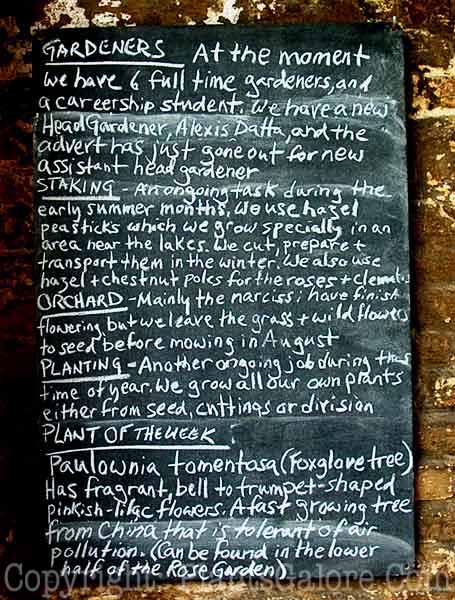 GARDENERS At the moment
we have 6 full time gardeners, and
a careership student. We have a new
Head Gardener, Alexis Datta, and the
advert has just gone out for new
assistant head gardener
STAKING - An ongoing task during the
early summer months. We use hazel
pea sticks which we grow specially in an
area near the lakes. We cut, prepare +
transport them in the winter. We also use
hazel + chestnut poles for the roses + clematis
ORCHARD - Mainly the narcissi have finish
flowering but we leave the grass + wild flowers
to seed before mowing in August
PLANTING - Another ongoing job during this
time of year. We grow all our own plants
either from seed, cuttings or division
PLANT OF THE WEEK :
Paulownia tomentosa (Foxglove tree)
Has fragrant, bell to trumpet-shaped
pinkish-lilac flowers. A fast growing tree
from China that is tolerant of air
pollution. (Can be found in the lower
half of the Rose Garden)
Copyright - PlantsGalore.Com